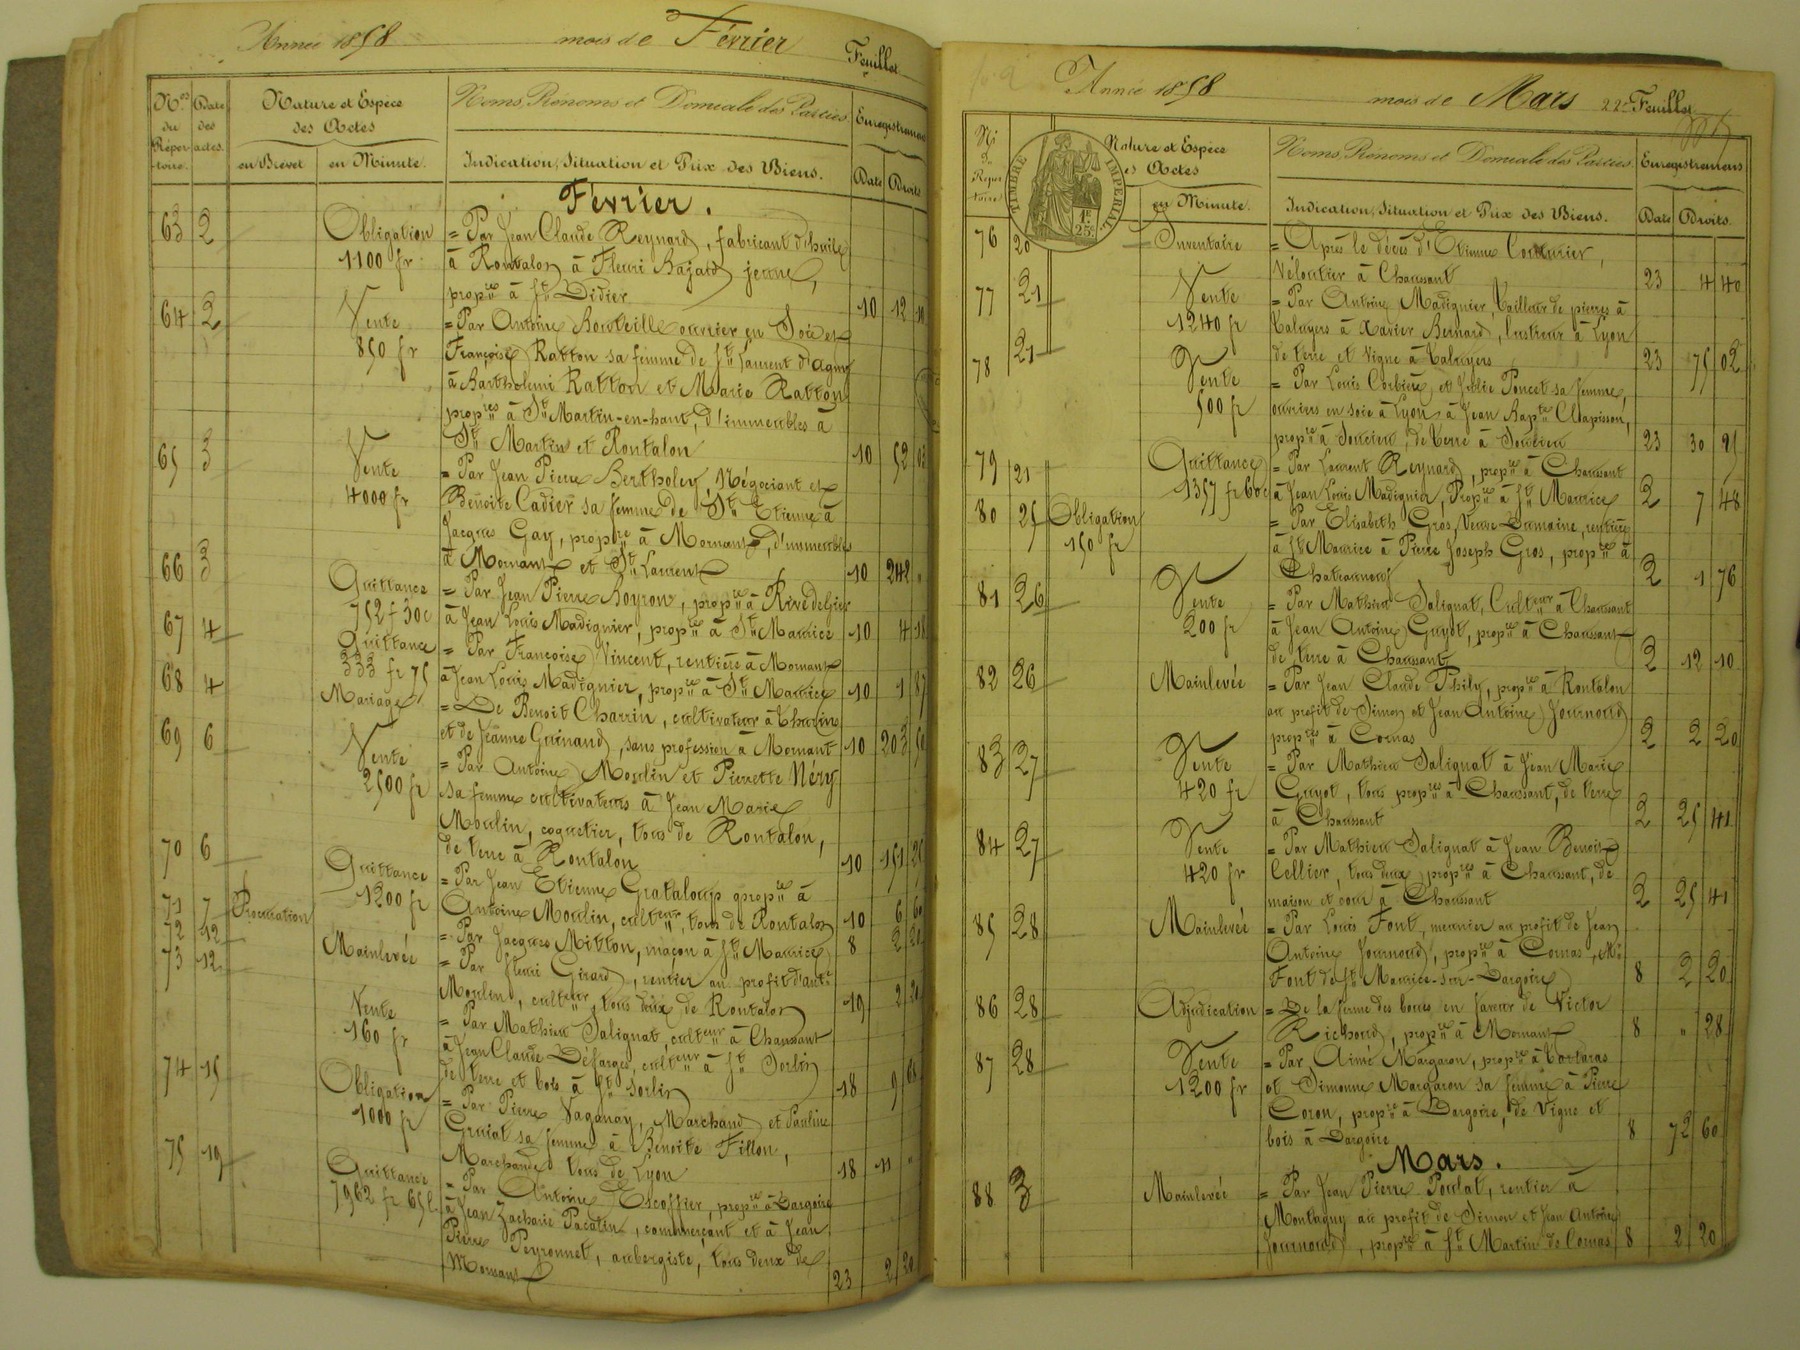 Année 1858 mois de Février Feuillet
Nos du Réper-toire. Date des actes. Nature et Espèce des Actes en Brevet en Minute. Noms, Prénoms et Domicile des Parties Indication, Situation et Prix des Biens. Enregistremens Date Droits
Février.
63 2 Obligation = Par Jean Claude Reynard, fabricant d'huile
1100 fr. à Rontalon à Fleuri Bajard jeune,
propre à St Didier 10 12 10
64 2 Vente = Par Antoine Bouteille ouvrier en Soie et
850 fr Françoise Ratton sa femme de St Laurent d'Agny
à Barthelemi Ratton et Marie Ratton
propres à St Martin-en-haut, d'immeubles à
St Martin et Rontalon 10 52
65 3 Vente = Par Jean Pierre Bertholey Négociant et
4000 fr Benoite Cadier sa femme de St Etienne à
Jacques Gay, propre à Mornant, d'immeubles
à Mornant et St Laurent 10 242 "
66 3 Quittance = Par Jean Pierre Boyron, propre à Rive de Gier
752 f 30c à Jean Louis Madignier, propre à St Maurice 10 4 18
67 4 Quittance = Par Françoise Vincent, rentière à Mornant
333 fr 75 à Jean Louis Madignier, propre à St Maurice 10 1 87
68 4 Mariage = De Benoit Charrin, cultivateur à Thurins
et de Jeanne Guinand, sans profession à Mornant 10 203 50
69 6 Vente = Par Antoine Moulin et Pierrette Néry
2500 fr sa femme cultivateurs à Jean Marie
Moulin, coquetier, tous de Rontalon,
de terre à Rontalon 10 151 25
70 6 Quittance = Par Jean Etienne Grataloup propre à
1200 fr Antoine Moulin, culteur, tous de Rontalon 10 6 60
71 7 Procuration = Par Jacques Mitton, maçon à St Maurice 8 2 20
72 12 Mainlevée = Par Fleuri Girard, rentier au profit d'ante
Moulin, culteur, tous deux de Rontalon 19 2 20
73 12 Vente = Par Mathieu Salignat, culteur à Chaussant
160 fr à Jean Claude Défarges, culteur à St Sorlin
de terre et bois à St Sorlin 18 9
74 15 Obligation = Par Pierre Vaganay, Marchand et Pauline
1000 fr sa femme à Benoite Fillon,
Marchande tous de Lyon 18 11 "
75 19 Quittance = Par Antoine Escoffier, propre à Dargoire
7962 fr 65c à Jean Zacharie Pacalin, commerçant et à Jean
Pierre Peyronnet, aubergiste, tous deux de
Mornant 23 2 20
Année 1858 mois de Mars 22e Feuillet
No du Réper-toire Nature et Espèce des Actes en Minute. Noms, Prénoms et Domicile des Parties Indication, Situation et Prix des Biens. Enregistremens Date Droits.
TIMBRE IMPERIAL 1F. 25c.
76 20 Inventaire = Après le décès d'Etienne Couturier,
Véloutier à Chaussant 23 4 40
77 21 Vente = Par Antoine Madignier, tailleur de pierres à
1240 fr Taluyers à Xavier Bernard, lustreur à Lyon
de terre et vigne à Taluyers 23 75 02
78 21 Vente = Par Louis Corbière et Julie Poncet sa femme,
500 fr ouvriers en soie à Lyon à Jean Bapte Clapisson,
propre à Soucieu, de terre à Soucieu 23 30 25
79 21 Quittance = Par Laurent Reynard, propre à Chaussant
1357 fr 60c à Jean Louis Madignier, Propre à St Maurice 2 7 48
80 25 Obligation = Par Elisabeth Gros, Veuve Dumaine, rentière
150 fr à St Maurice à Pierre Joseph Gros, propre à
Chateauneuf 2 1 76
81 26 Vente = Par Mathieu Salignat, Culteur à Chaussant
200 fr à Jean Antoine Guyot, propre à Chaussant
de terre à Chaussant 2 12 10
82 26 Mainlevée = Par Jean Claude Thily, propre à Rontalon
au profit de Simon et Jean Antoine Journoud
propres à Cornas 2 2 20
83 27 Vente = Par Mathieu Salignat à Jean Marie
420 fr Guyot, tous propres à Chaussant, de terre
à Chaussant 2 25 41
84 27 Vente = Par Mathieu Salignat à Jean Benoit
420 fr Cellier, tous deux propres à Chaussant, de
maison et cour à Chaussant 2 25 41
85 28 Mainlevée = Par Louis Font, meunier au profit de Jean
Antoine Journoud, propre à Cornas, Mr
Font de St Maurice-sur-Dargoire 8 2 20
86 28 Adjudication = De la ferme des boues en faveur de Victor
Richoud, propre à Mornant 8 " 28
87 28 Vente = Par Aimé Margaron, propre à Tartaras
1200 fr et Simonne Margaron sa femme à Pierre
Coron, propre à Dargoire, de Vigne et
bois à Dargoire 8 72 60
Mars.
88 3 Mainlevée = Par Jean Pierre Poulat, rentier à
Montagny au profit de Simon et Jean Antoine
Journoud, propres à St Martin de Cornas 8 2 20